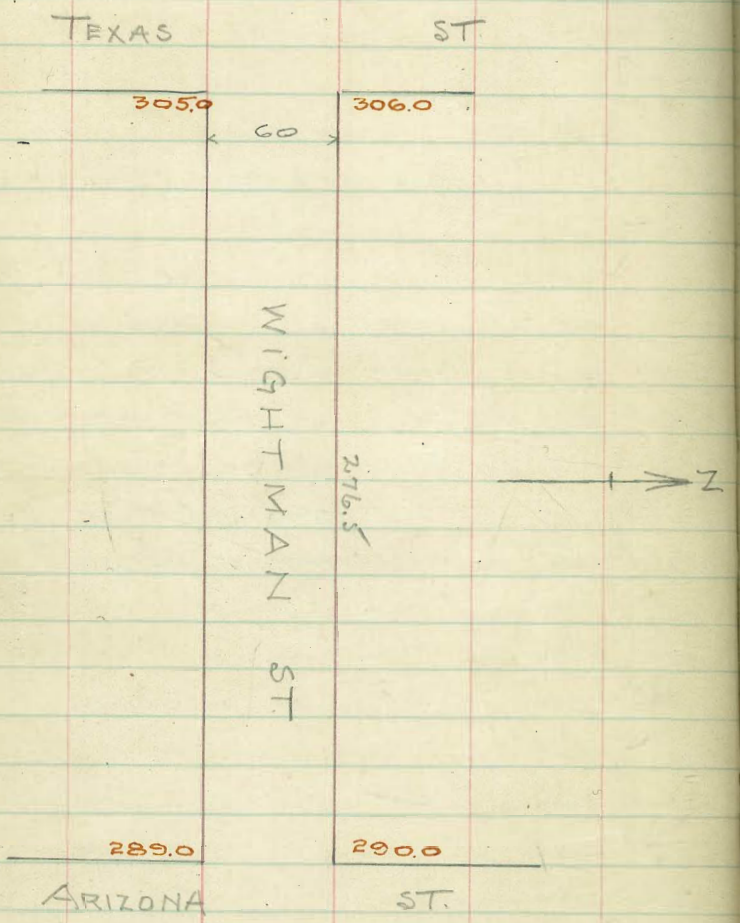 TEXAS ST
305.0 306.0
60
WIGHTMAN ST.
276.5
N
289.0 290.0
ARIZONA ST.